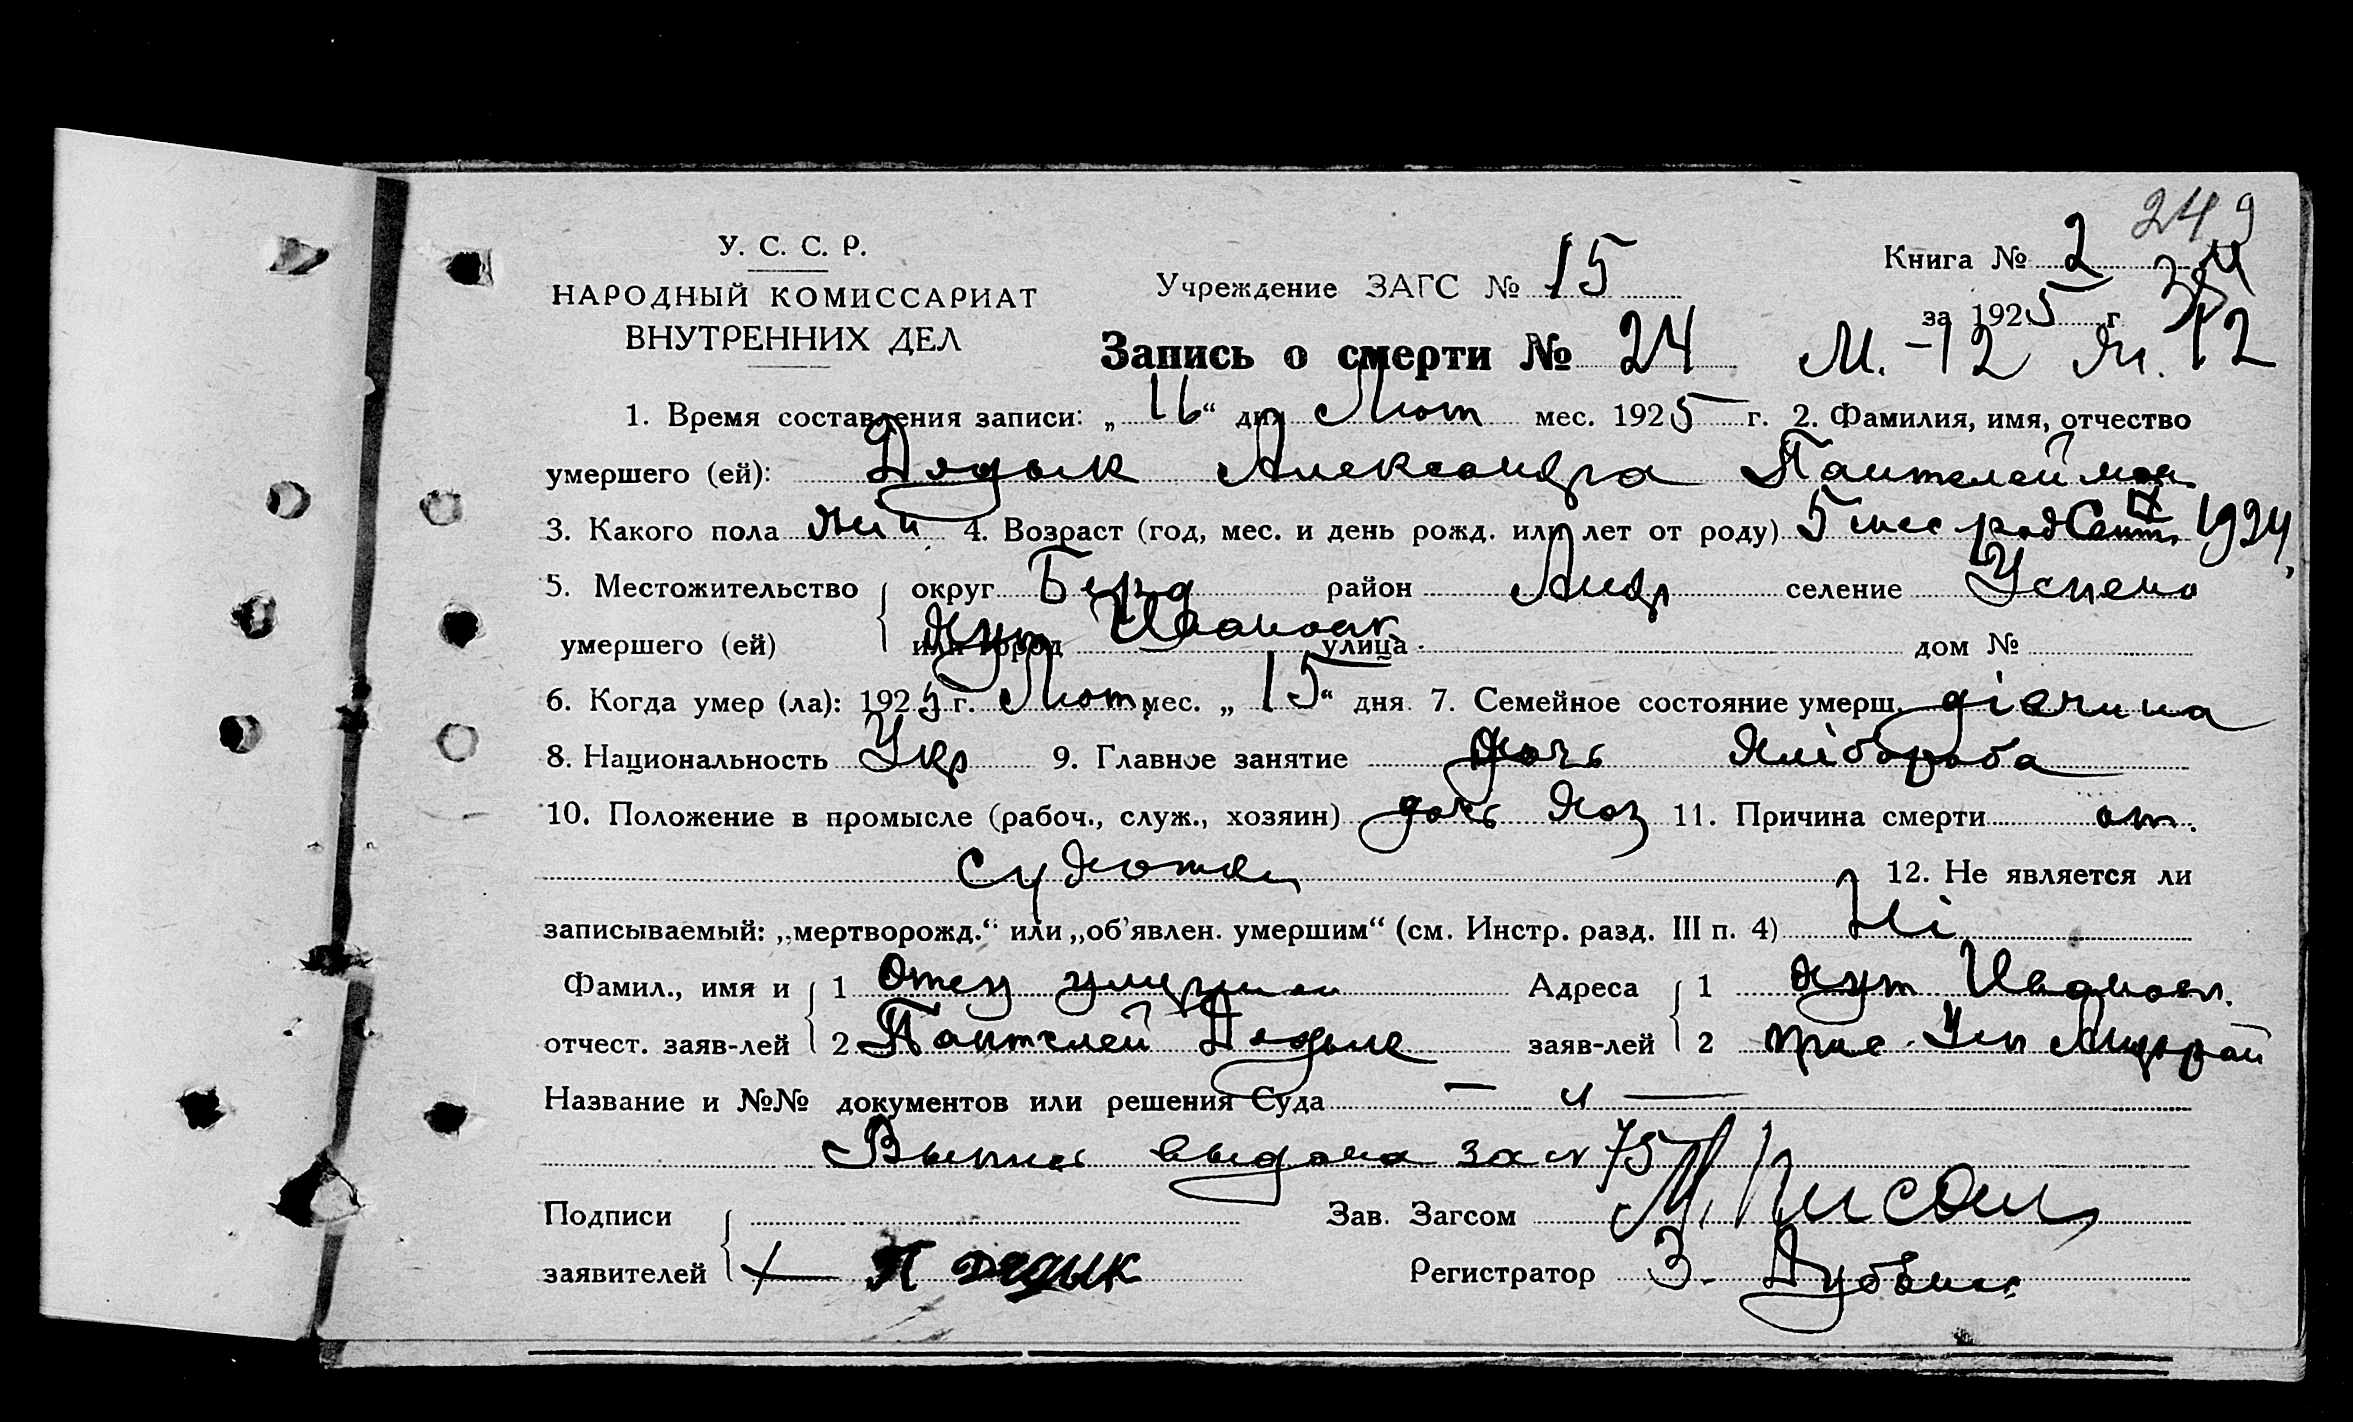 249
У. С. С. Р.
НАРОДНЫЙ КОМИССАРИАТ
ВНУТРЕННИХ ДЕЛ
Учреждение ЗАГС № 15
Книга № 2
за 1925 г.
Запись о смерти № 24 М. - 12
1. Время составления записи: „16“ дня Лют мес. 1925 г. 2. Фамилия, имя, отчество
умершего (ей): Дядык Александра Пантелеймон
3. Какого пола жін 4. Возраст (год, мес. и день рожд. или лет от роду) 5 мес род Сент. 1924
5. Местожительство округ Берд район Андр селение Успено
умершего (ей) или город хут Ивановк улица дом №
6. Когда умер (ла): 1925 г. Лют мес. „15“ дня. 7. Семейное состояние умерш. дівчина
8. Национальность Укр 9. Главное занятие дочь хлібороба
10. Положение в промысле (рабоч., служ., хозяин) дочь хоз 11. Причина смерти от
сухоты 12. Не является ли
записываемый: „мертворожд.“ или „об’явлен. умершим“ (см. Инстр. разд. III п. 4) Ні
Фамил., имя и 1 Отец умершей Адреса 1 хут Ивановк.
отчест. заяв-лей 2 Пантелей Дядык заяв-лей 2 Усп Андррай
Название и №№ документов или решения Суда — и —
Выпись выдана за № 75
Подписи Зав. Загсом
заявителей П Дядык Регистратор З.